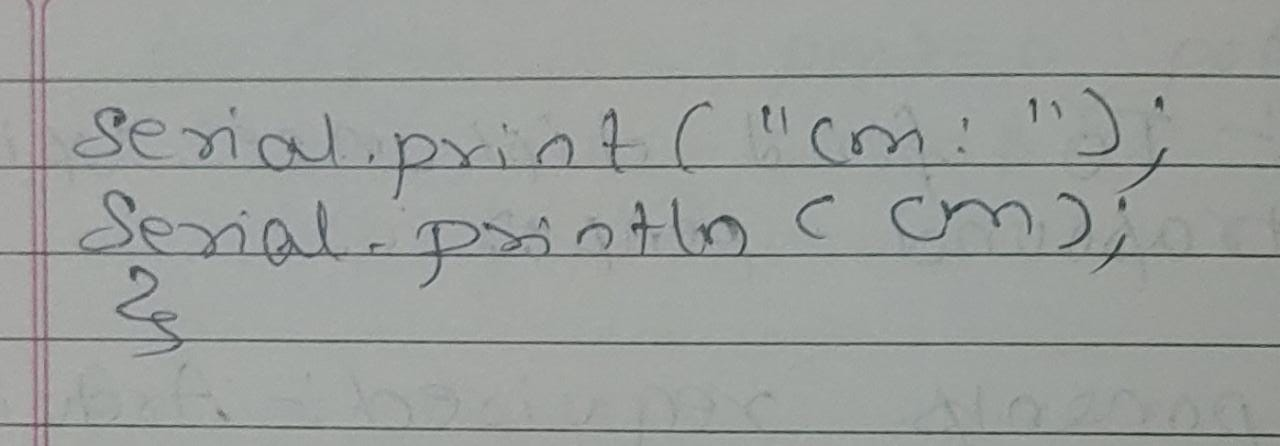 Serial.print("cm: ");
Serial.println(cm);
}